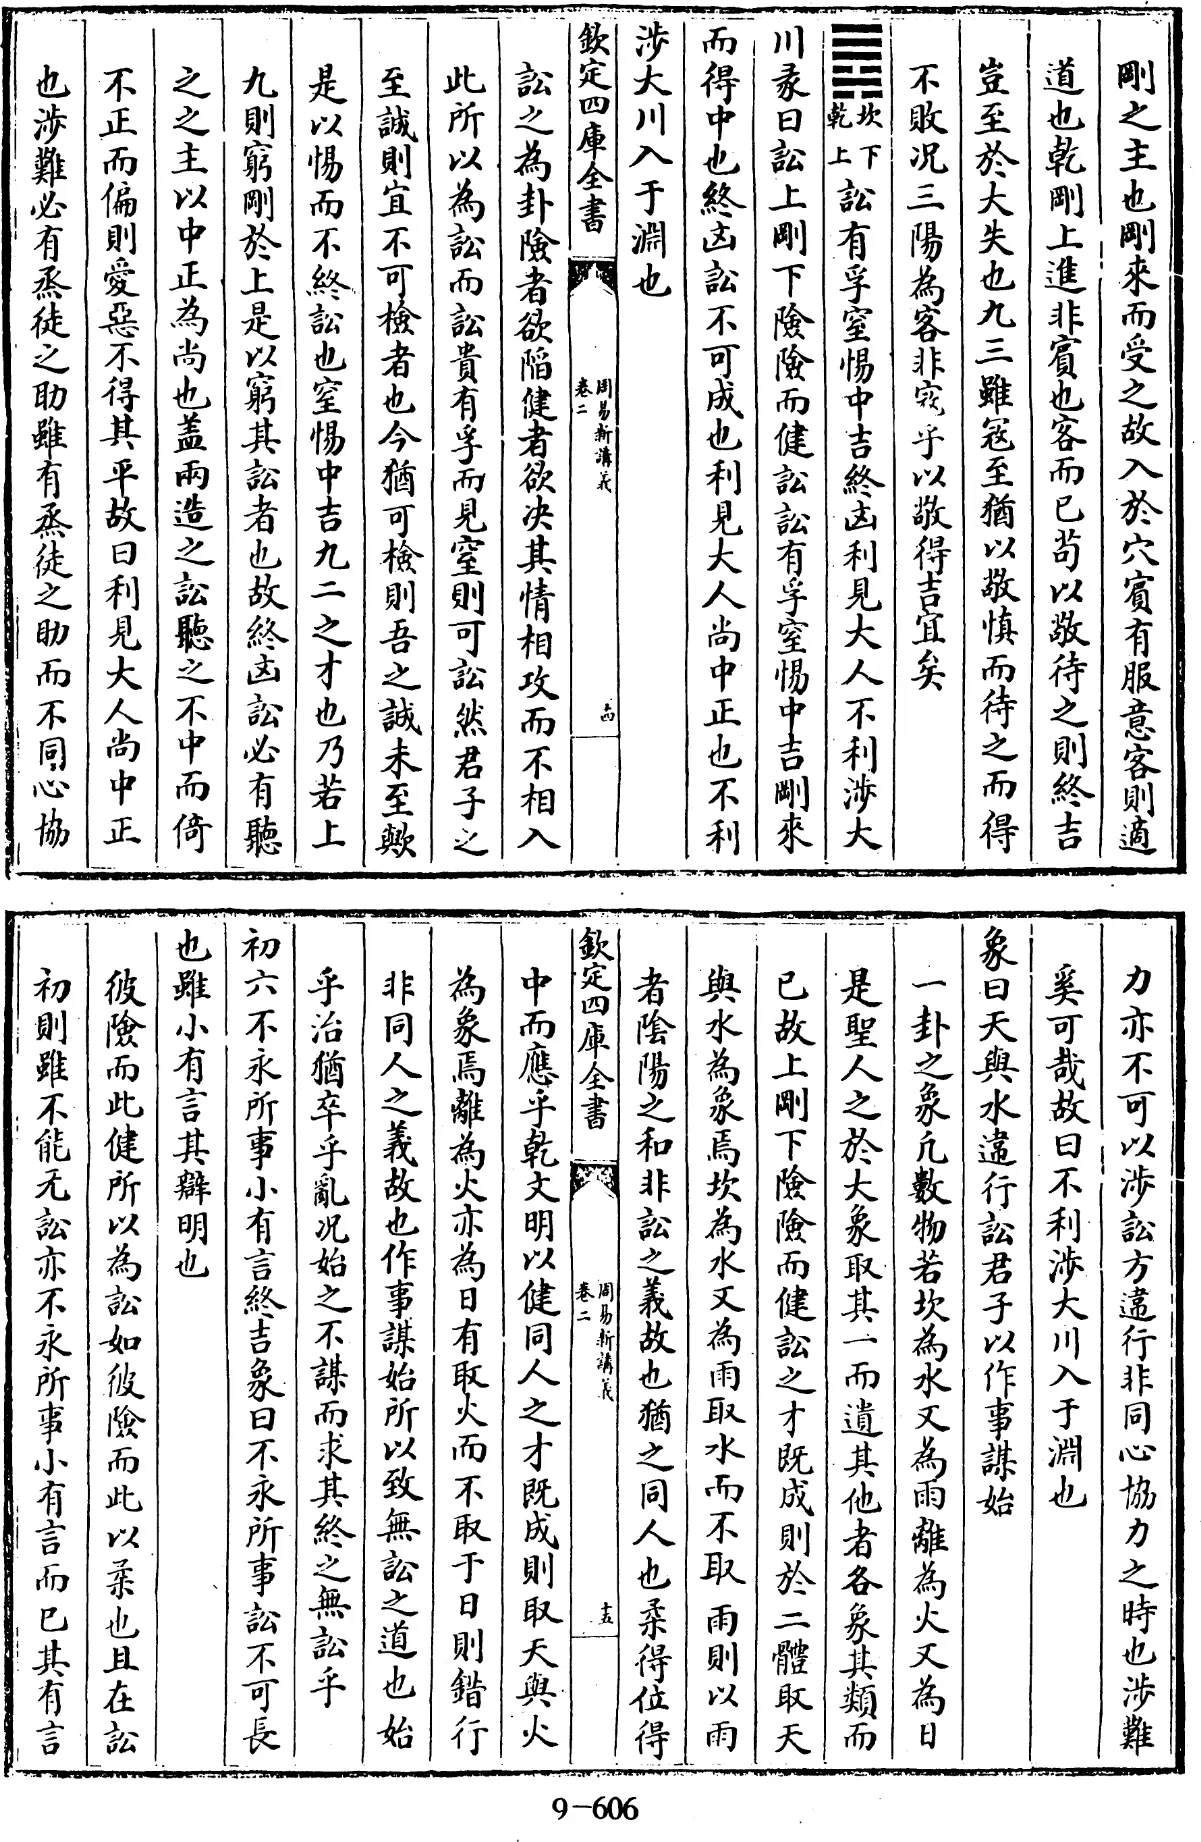 剛之主也剛來而受之故入於穴賓有服意客則適
道也乾剛上進非賓也客而已苟以敬待之則終吉
豈至於大失也九三雖寇至猶以敬慎而待之而得
不敗况三陽為客非寇乎以敬得吉宜矣
坎下
乾上
訟有孚窒惕中吉終凶利見大人不利涉大
川彖曰訟上剛下險險而健訟訟有孚窒惕中吉剛來
而得中也終凶訟不可成也利見大人尚中正也不利
涉大川入于淵也
欽定四庫全書
周易新講義
卷二
十四
訟之為卦險者欲陷健者欲决其情相攻而不相入
此所以為訟而訟貴有孚而見窒則可訟然君子之
至誠則宜不可檢者也今猶可檢則吾之誠未至歟
是以惕而不終訟也窒惕中吉九二之才也乃若上
九則窮剛於上是以窮其訟者也故終凶訟必有聽
之之主以中正為尚也蓋兩造之訟聽之不中而倚
不正而偏則愛惡不得其平故曰利見大人尚中正
也涉難必有烝徒之助雖有烝徒之助而不同心協
力亦不可以涉訟方違行非同心協力之時也涉難
奚可哉故曰不利涉大川入于淵也
象曰天與水違行訟君子以作事謀始
一卦之象凡數物若坎為水又為雨離為火又為日
是聖人之於大象取其一而遺其他者各象其類而
已故上剛下險險而健訟之才既成則於二體取天
與水為象焉坎為水又為雨取水而不取雨則以雨
者陰陽之和非訟之義故也猶之同人也柔得位得
欽定四庫全書
周易新講義
卷二
十五
中而應乎乾文明以健同人之才既成則取天與火
為象焉離為火亦為日有取火而不取于日則錯行
非同人之義故也作事謀始所以致無訟之道也始
乎治猶卒乎亂况始之不謀而求其終之無訟乎
初六不永所事小有言終吉象曰不永所事訟不可長
也雖小有言其辯明也
彼險而此健所以為訟如彼險而此以柔也且在訟
初則雖不能无訟亦不永所事小有言而已其有言
9-606